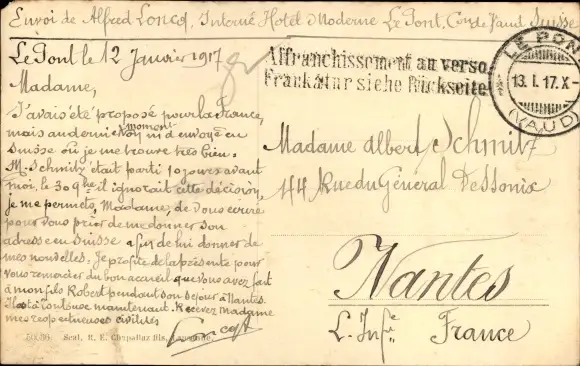 Envoi de Alfred Loncq, Interné Hotel Moderne Le Pont, Con de Vaud, Suisse
Le Pont le 12 Janvier 1917
Madame,
J'avais été proposé pour la France,
mais au dernier moment on m'a envoyé en
Suisse où je me trouve très bien.
M. Schmitz était parti 10 jours avant
moi, le 30 9bre il ignorait cette décision,
je me permets, Madame, de vous écrire
pour vous prier de me donner son
adresse en Suisse afin de lui donner de
mes nouvelles. Je profite de la présente pour
vous remercier du bon accueil que vous avez fait
à mon fils Robert pendant son séjour à Nantes.
Il est à Toulouse maintenant. Recevez Madame
mes respectueuses civilités
Loncq
Affranchissement au verso
Frankatur siehe Rückseite
LE PONT
13.I.17.X-
(VAUD)
Madame Albert Schmitz
44 Rue du Général Dessonix
Nantes
L. Infre France
Scat. R. E. Chapallaz fils, Lausanne